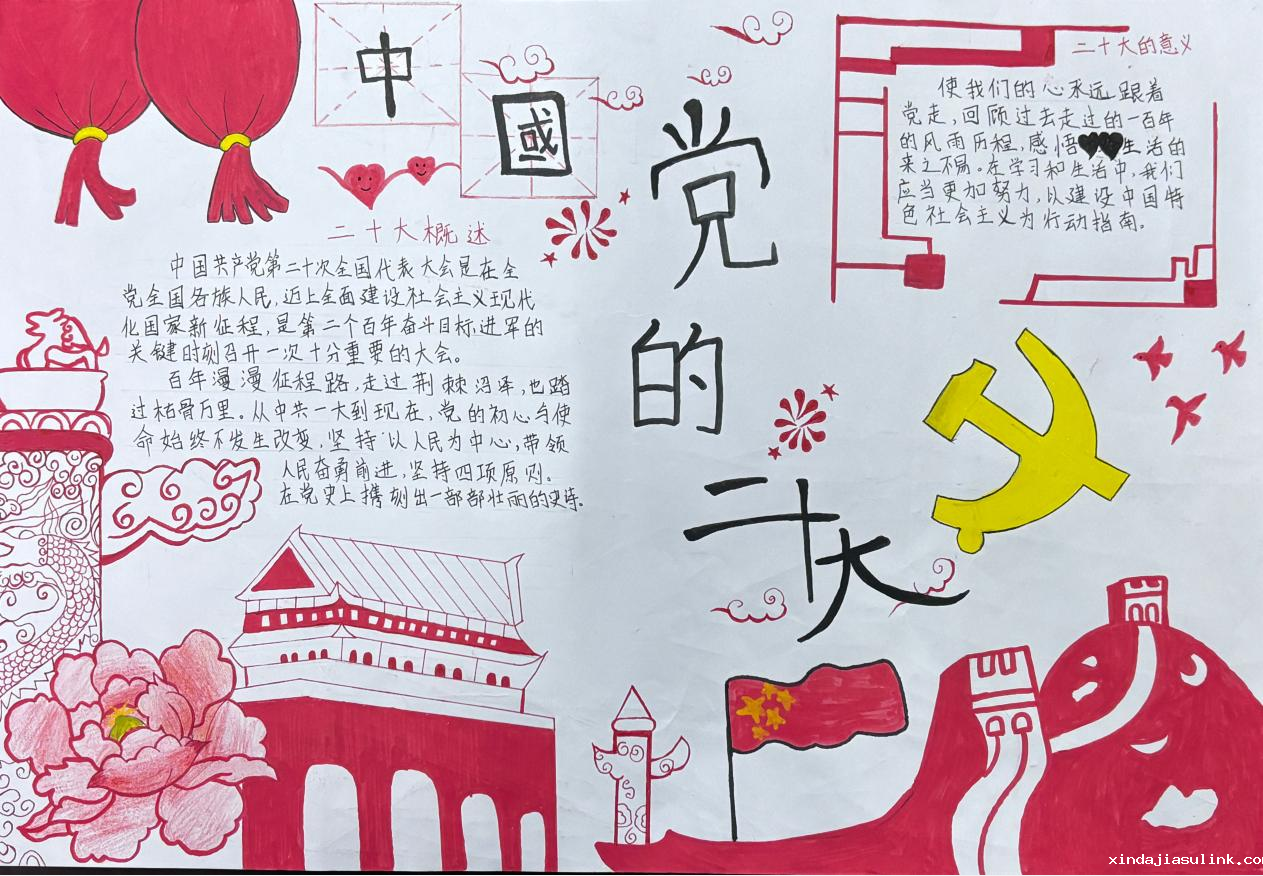 中
國
二十大概述
中国共产党第二十次全国代表大会是在全
党全国各族人民，迈上全面建设社会主义现代
化国家新征程，是第二个百年奋斗目标进军的
关键时刻召开一次十分重要的大会。
百年漫漫征程路，走过荆棘沼泽，也踏
过枯骨万里。从中共一大到现在，党的初心与使
命始终不发生改变，坚持"以人民为中心"，带领
人民奋勇前进，坚持四项原则。
在党史上携刻出一部部壮丽的史诗。
党
的
二十大
二十大的意义
使我们的心永远跟着
党走，回顾过去走过的一百年
的风雨历程，感悟生活的
来之不易。在学习和生活中，我们
应当更加努力，以建设中国特
色社会主义为行动指南。
xindajiasulink.com